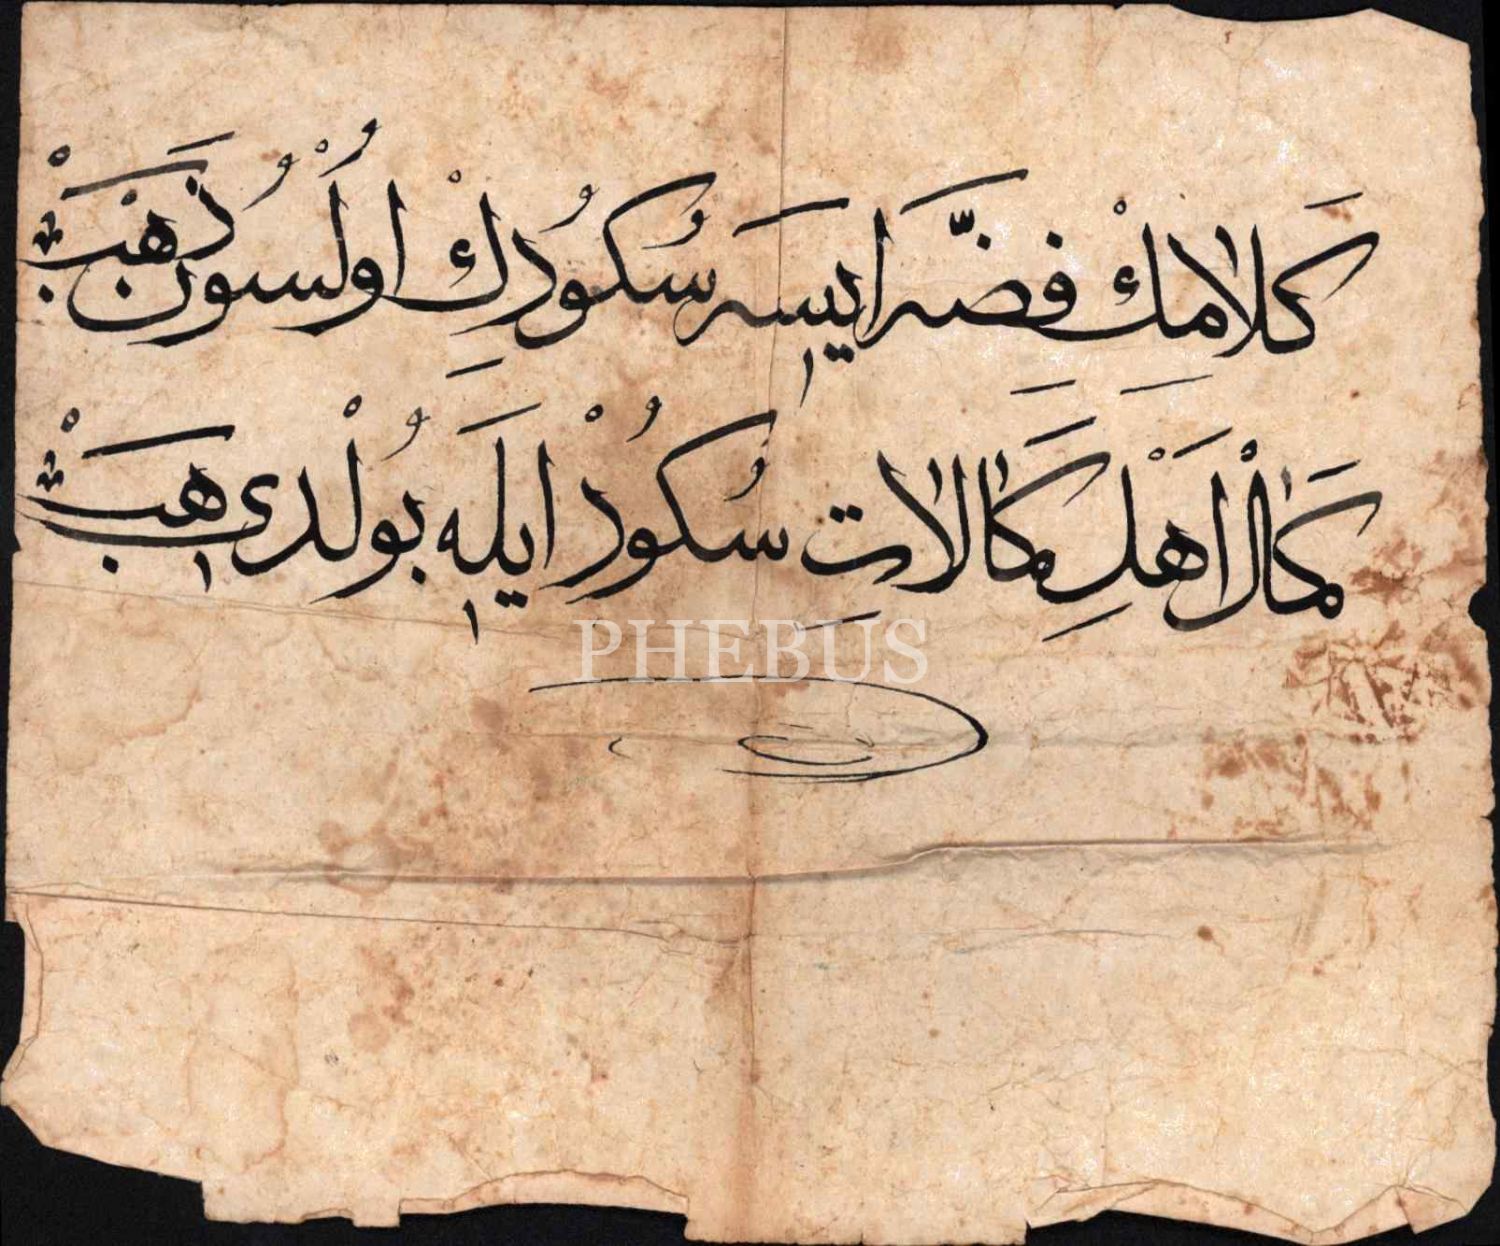 كَلَامِكْ فِضَّه اَيسَه سُكُوُدِكْ اوُلْسُونْ ذَهَبْ
كَمَالْ اَهْلِ كَمَالَاتِ سُكُوُدْ اِيلَه بُولْدِى هَبْ
PHEBUS